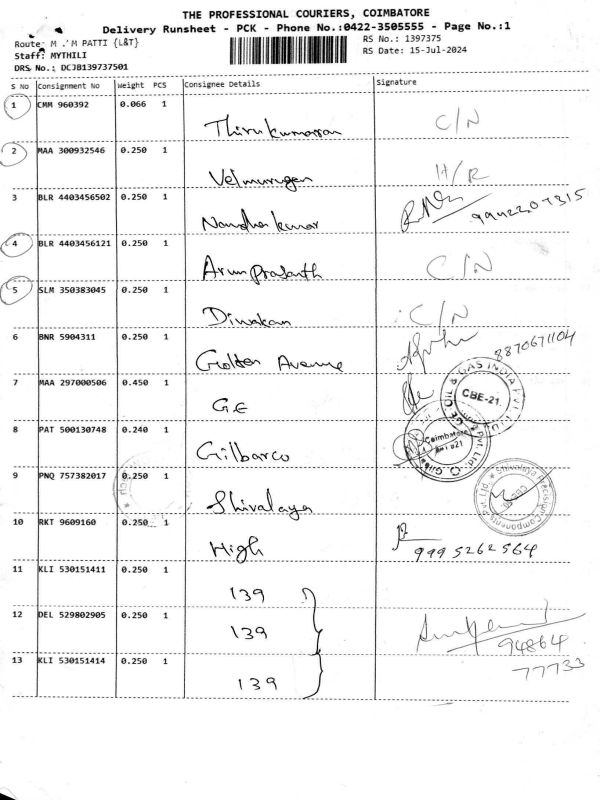 THE PROFESSIONAL COURIERS, COIMBATORE
Delivery Runsheet - PCK - Phone No.:0422-3505555 - Page No.:1
Route: M . M PATTI {L&T} RS No.: 1397375
Staff: MYTHILI RS Date: 15-Jul-2024
DRS No.: DCJB139737501
S No Consignment No Weight PCS Consignee Details Signature
1 CMM 960392 0.066 1
Thirukumaran C/N
2 MAA 300932546 0.250 1
Velmurugan H/R
3 BLR 4403456502 0.250 1
Nandhakumar 9942207315
4 BLR 4403456121 0.250 1
Arun Prasanth C/N
5 SLM 350383045 0.250 1
Diwakar C/N
6 BNR 5904311 0.250 1
Golden Avenue 8870671104
7 MAA 297000506 0.450 1
G.E CBE-21.
8 PAT 500130748 0.240 1
Gilbarco Coimbatore
9 PNQ 757382017 0.250 1
Shivalaya Shivalaya Precision Components Pvt Ltd.
10 RKT 9609160 0.250 1
High 9995262564
11 KLI 530151411 0.250 1
139
12 DEL 529802905 0.250 1
139 94864
77733
13 KLI 530151414 0.250 1
139